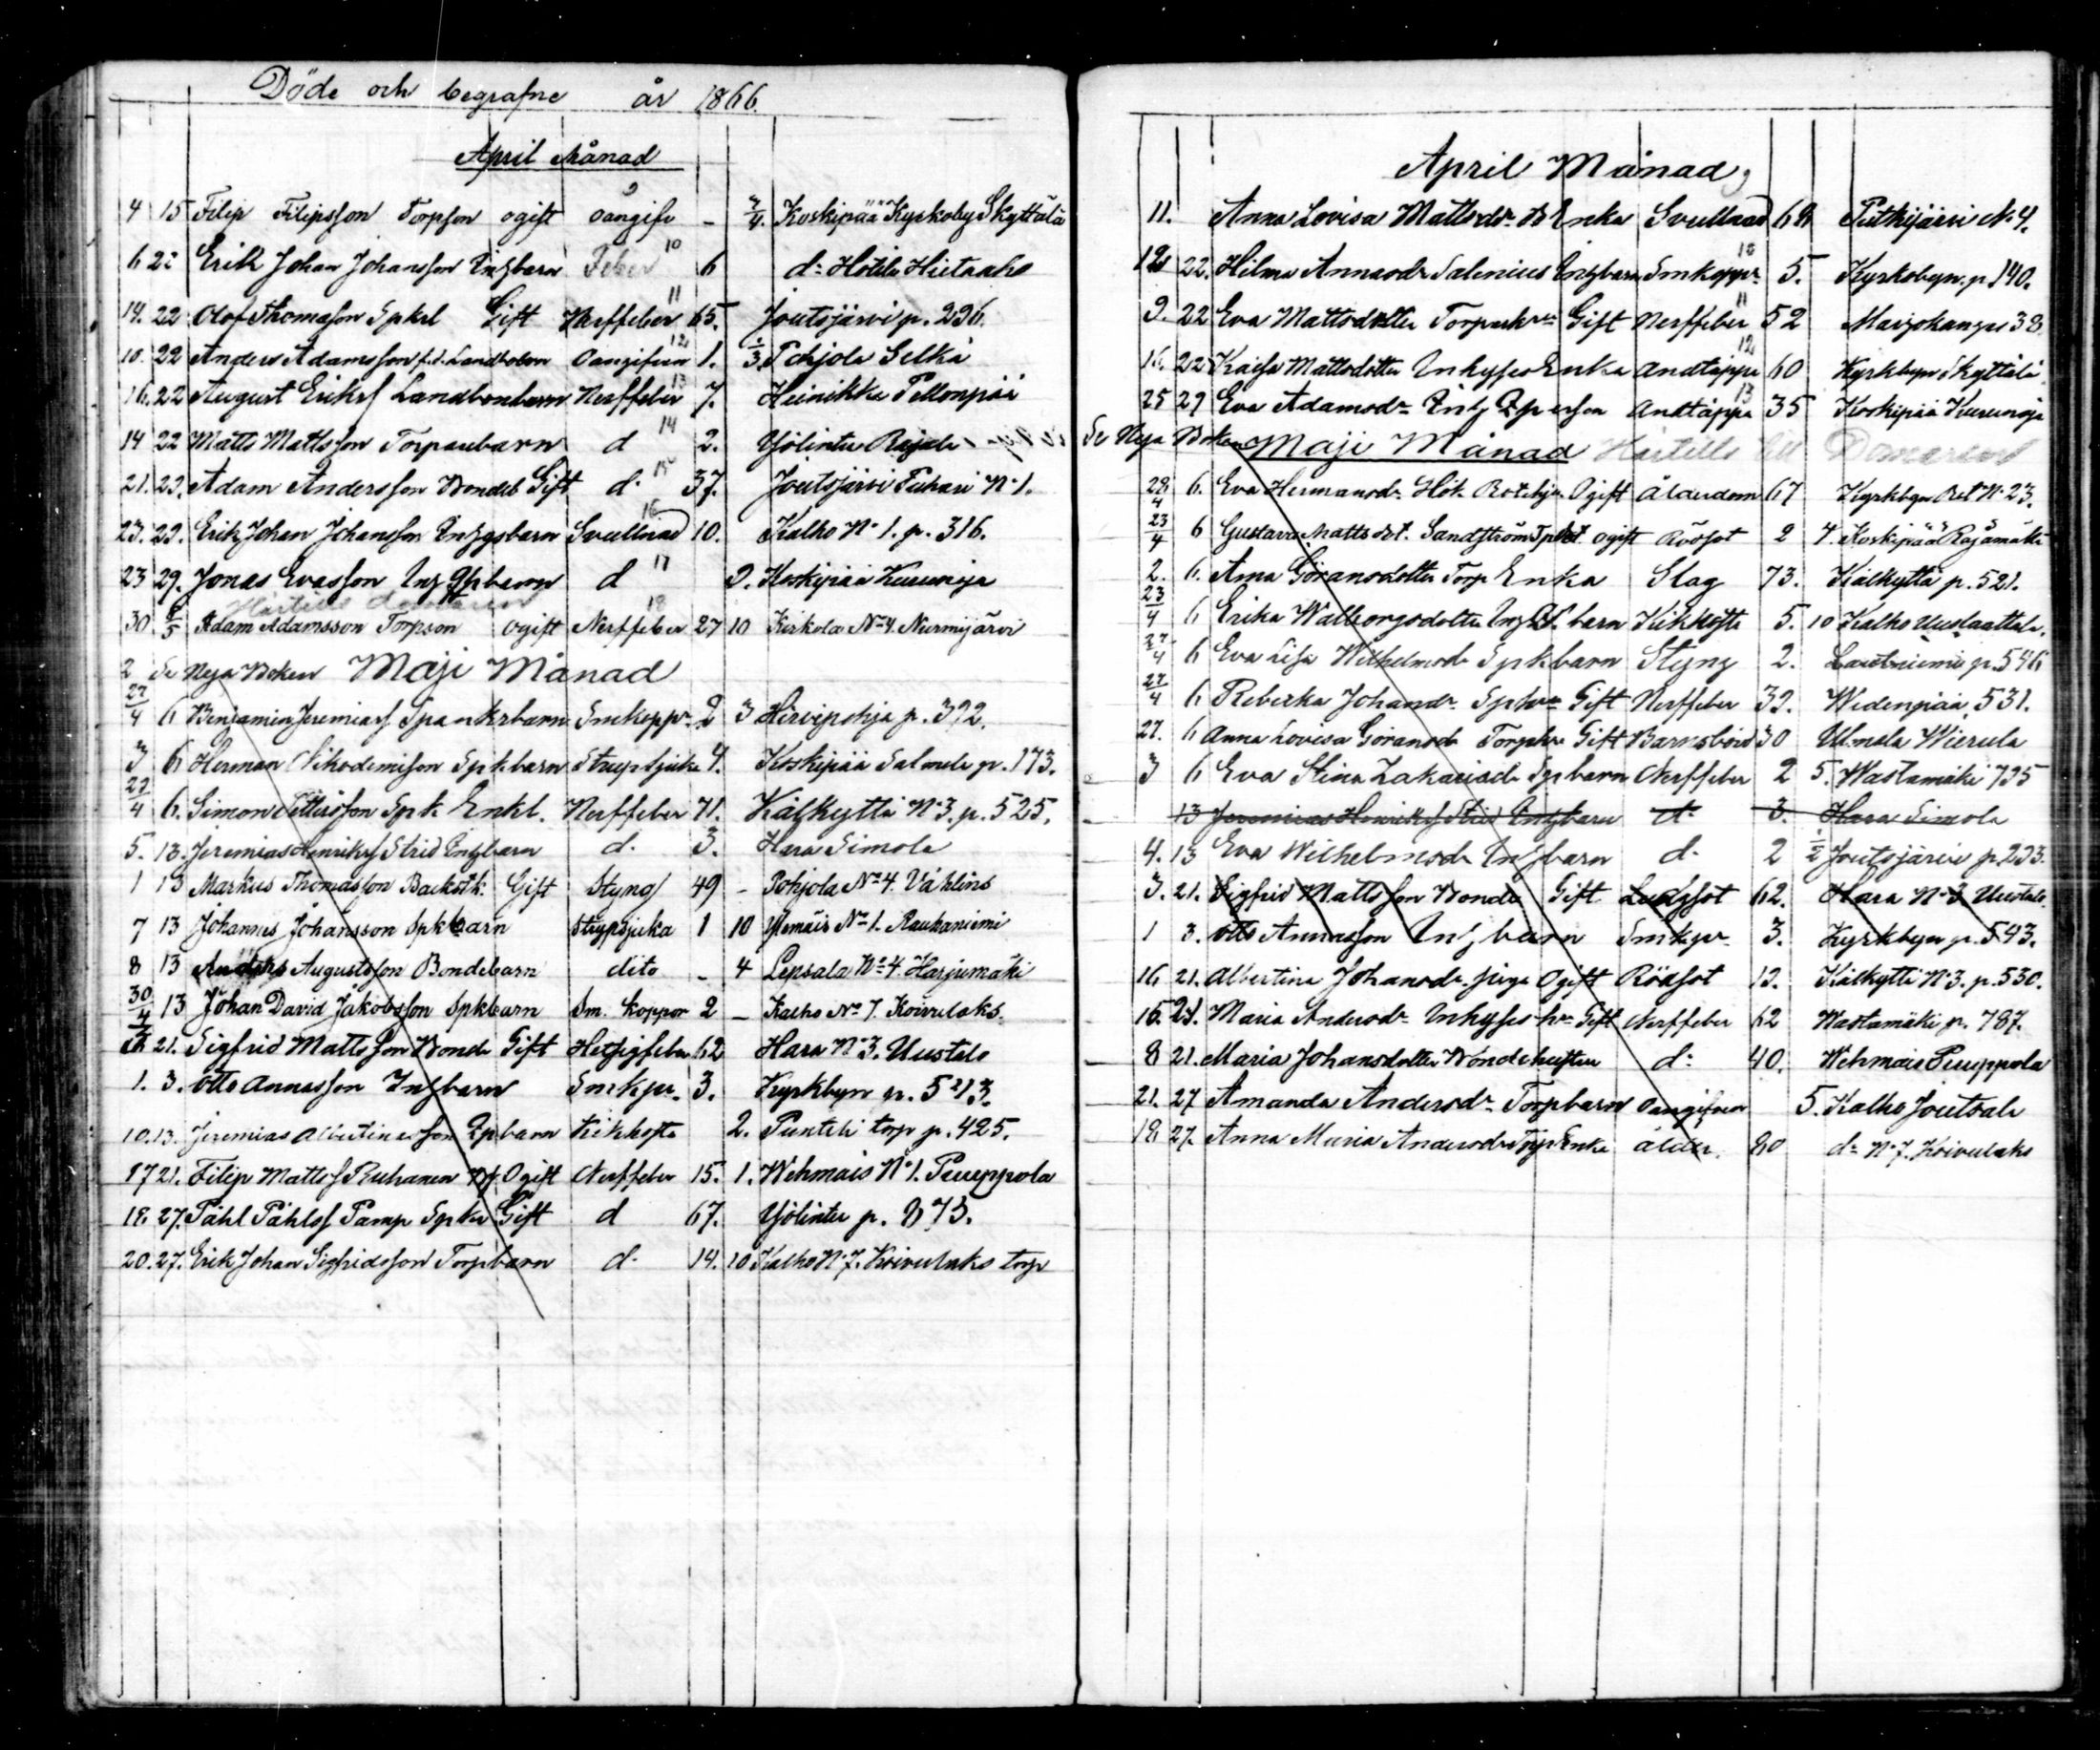 Döde och begrafne år 1866.
April Månad
4 15 Filip Filipsson Torpson ogift oangifv - 3/4. Koskipää Kyrkoby Skyttälä
6 22 Erik Johan Johansson Inhbarn Feber 10 6 d:o Hötila Hietaaho
19. 22 Olof Thomasson Spkl Gift Nerffeber 11 65. Joutsjärvi p. 296.
10. 22 Anders Adamsson f.d. Landbobarn Oangifven 12 1. 3. Pohjola Selkä
16. 22 August Eriks Landbonbarn Nerffeber 13 7. Heinikka Pellonpää
14 22 Matts Mattsson Torparebarn d 14 2. Yölintu Rajala
21. 29. Adam Andersson Bonde Gift d. 15 37. Joutsjärvi Tuhari N:o 1.
23. 29. Erik Johan Johansson Inhysbarn Svullnad 16 10. Kalho N:o 1. p. 316.
23 29. Jonas Evasson Inh barn d 17 2. Koskipää Kuusnoja
Härtills
30 6/5 Adam Adamsson Torpson ogift Nerffeber 18 27 10 Kirkola No 4. Nurmijärvi
2 Se Nya Boken Maji Månad
27/4 6 Benjamin Jeremias Spankrbarn Smkoppr. 2 3 Hirvipohja p. 392.
3 6 Herman Nikodemison Spkbarn Strupsjuka 4. Koskipää Salmela p. 173.
27/4 6. Simon Spk Enkl. Nerffeber 71. Kälkyttä N:o 3. p. 525.
5. 13. Jeremias Henriks Strid Inhbarn d. 3. Hara Simola
1 13 Markus Thomasson Backstk: Gift Styng 49 - Pohjola No 4. Vählins
7 13 Johannes Johansson Spkbarn Strypsjuka 1 10 No 1. Rauhaniemi
8 13 Anders Augustsson Bondebarn dito - 4 Lepsala No 4. Harjumäki
30/4 13 Johan David Jakobsson Spkbarn Sm. koppor 2 - Kalho No 7. Koivulaks.
21. Sigfrid Mattsson Bonde Gift Hetsigfeber 62 Hara N:o 3. Uustalo
1. 3. Otto Annasson Inhbarn Smkpr. 3. Kyrkbyn p. 543.
10. 13. Jeremias Albertinasson barn Kikhosta 2. Puntti torp p. 425.
17 21. Filip Matts Ruhanen Ogift Nerffeber 15. 1. Wehmais N:o 1. Puuppola
18. 27. Påhl Påhls Pamp Spkr Gift d 67. Yölintu p. 873.
20. 27. Erik Johan Sigfridsson Torpbarn d. 14. 10 Kalho N:o 7. Koivulaks torp
April Månad
11. Anna Lovisa Mattsdr. Enka Svullnad 9 68 Putkijärvi N:o 4.
18 22. Hilma Annasdr Salenius Inhbarn Smkoppr. 10 5. Kyrkobyn p. 140.
9. 22 Eva Mattsdotter Torparhru Gift Nerffeber 11 52 Maivohangas 38
16. 22 Kaisa Mattsdotter Inhyses Enka Andtäppa 12 60 Kyrkbyn Skyttälä
25 29 Eva Adamsdr Inh person Andtäppa 13 35 Koskipää Kuusnoja
Se Nya Boken Maji Månad Härtills till Domaren
28/4 6. Eva Hermansdr Hök Rotehjn. Ogift Ålderdom 67 Kyrkbyn Rot N:o 23.
23/4 6 Gustava Mattsdot. Sandström Spdot ogift Rödsot 2 4. Koskipää Rajamäki
2. 6. Anna Göransdotter Torp Enka Slag 73. Kälkyttä p. 521.
23/4 6 Erika Walborgsdotter Inh barn Kikhosta 5. 10 Kalho Uuslaattala.
27/4 6 Eva Lisa Wilhelmsdr Spkbarn Styng 2. Lautniemi p. 546
27/4 6 Rebecka Johansdr. Spkru Gift Nerffeber 39. Wedenpää 531.
27. 6 Anna Lovisa Göransdr Torphru Gift Barnsbörd 30 Ulmala Wierula
3 6 Eva Stina Zakariasdr Spbarn Nerffeber 2 5. Wastamäki 735
13 Jeremias Henriks Strid Inhbarn d. 3. Hara Simola
4. 13 Eva Wilhelmsdr Inhbarn d. 2 1/2 Joutsjärvi p. 293.
3. 21. Sigfrid Mattsson Bonde Gift 62. Hara N:o 3 Uustalo.
1 3. Otto Annasson Inhbarn Smkpr. 3. Kyrkbyn p. 543.
16 21. Albertina Johansdr. piga Ogift Rödsot 12. Kälkyttä N:o 3. p. 530.
15. 21. Maria Andersdr Inhyses hru Gift Nerffeber 62 Wastamäki p. 787.
8 21. Maria Johansdotter Bondehustru d: 40. Wehmais Puuppola
21. 27 Amanda Andersdr. Torpbarn Oangifven 5. Kalho Joutsala
18 27. Anna Maria Andersdr Torp Enka ålder. 80 d:o N:o 7. Koivulaks